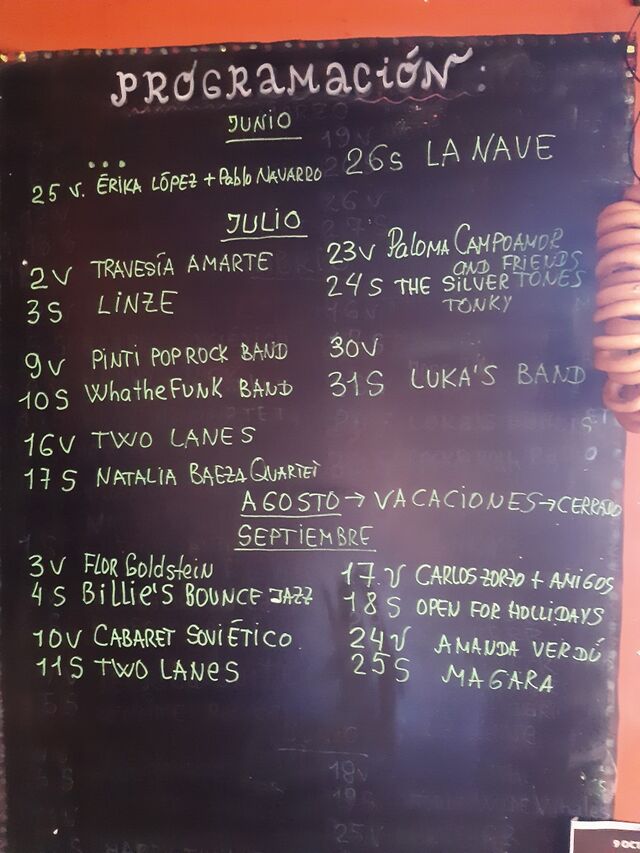 PROGRAMACIÓN:
JUNIO
...
25 V. ÉRIKA LÓPEZ + Pablo NAVARRO
26S LA NAVE
JULIO
2V TRAVESÍA AMARTE
3S LINZE
9V PINTI POP ROCK BAND
10S WhatheFUNK BAND
16V TWO LANES
17S NATALIA BAEZA QUARTET
23V PALOMA CAMPOAMOR
AND FRIENDS
24S THE SILVER TONES
TONKY
30V
31S LUKA'S BAND
AGOSTO → VACACIONES → CERRADO
SEPTIEMBRE
3V FLOR GOldstein
4S BILLIE'S BOUNCE JAZZ
10V CABARET SOVIÉTICO
11S TWO LANES
17.V CARLOS ZORZO + AMIGOS
18S OPEN FOR HOLLIDAYS
24V AMANDA VERDÚ
25S MAGARA
18V